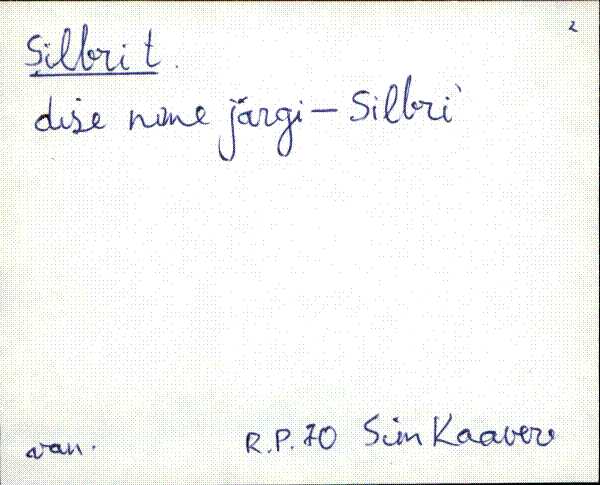 2
Silbri t.
dise nime järgi – Silbri`
van. R.P. 70 Sim Kaavere